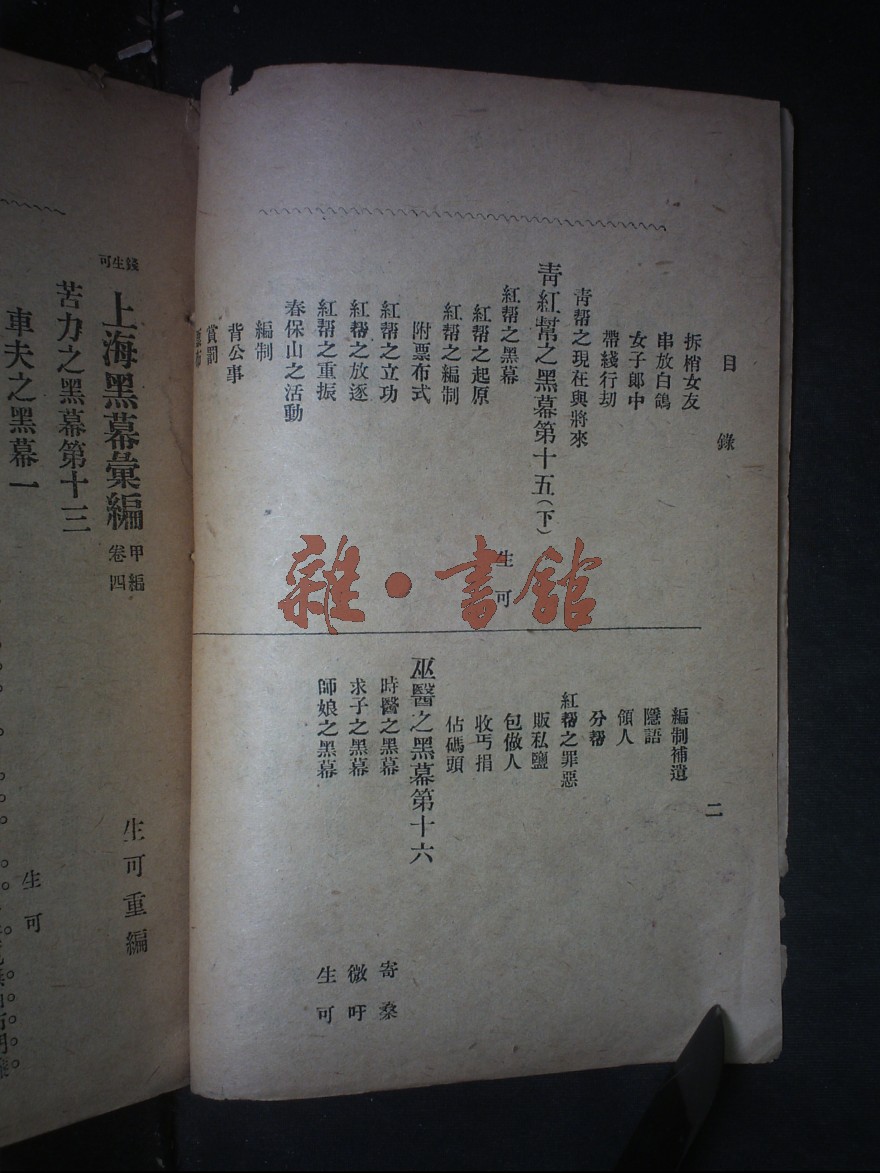 目錄
拆梢女友
串放白鴿
女子郎中
帶綫行刧
青帮之現在與將來
青紅幫之黑幕第十五(下)
紅帮之黑幕 生可
紅帮之起原
紅帮之編制
附票布式
紅帮之立功
紅帮之放逐
紅帮之重振
春保山之活動
編制
背公事
賞罰
二
編制補遺
隱語
領人
分帮
紅帮之罪惡
販私鹽
包做人
收丐捐
佔碼頭
巫醫之黑幕第十六
時醫之黑幕 寄桑
求子之黑幕 微吁
師娘之黑幕 生可
雜·書館
錢生可 上海黑幕彙編 甲編卷四 生可重編
苦力之黑幕第十三
車夫之黑幕一 生可